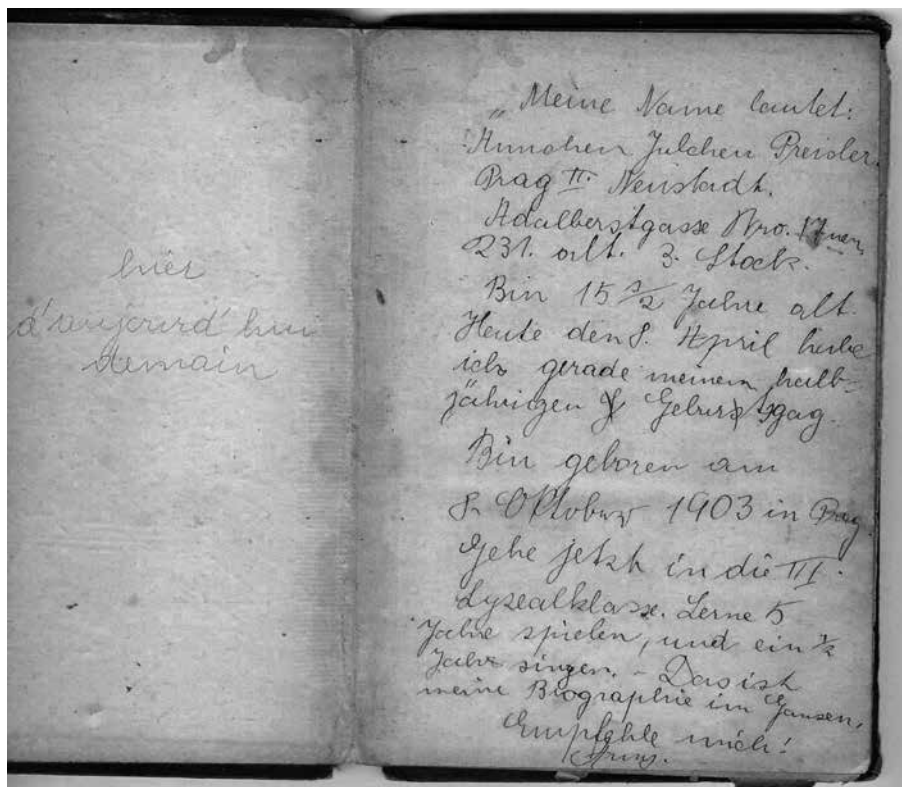 hier
d'aujourd'hui
demain
„Meine Name lautet:
Annchen Julchen Preisler.
Prag II. Neustadt.
Adalberstgasse Nro. 17 neu
231. alt. 3. Stock.
Bin 15 1/2 Jahre alt.
Heute den 8. April habe
ich gerade meinem halb-
jährigen Geburtsgag.
Bin geboren am
8. Oktober 1903 in Prag.
Gehe jetzt in die III.
Lyzealklasse. Lerne 5
Jahre spielen, und ein 1/2
Jahr singen. – Das ist
meine Biographie im Gansen.
Empfehle mich!